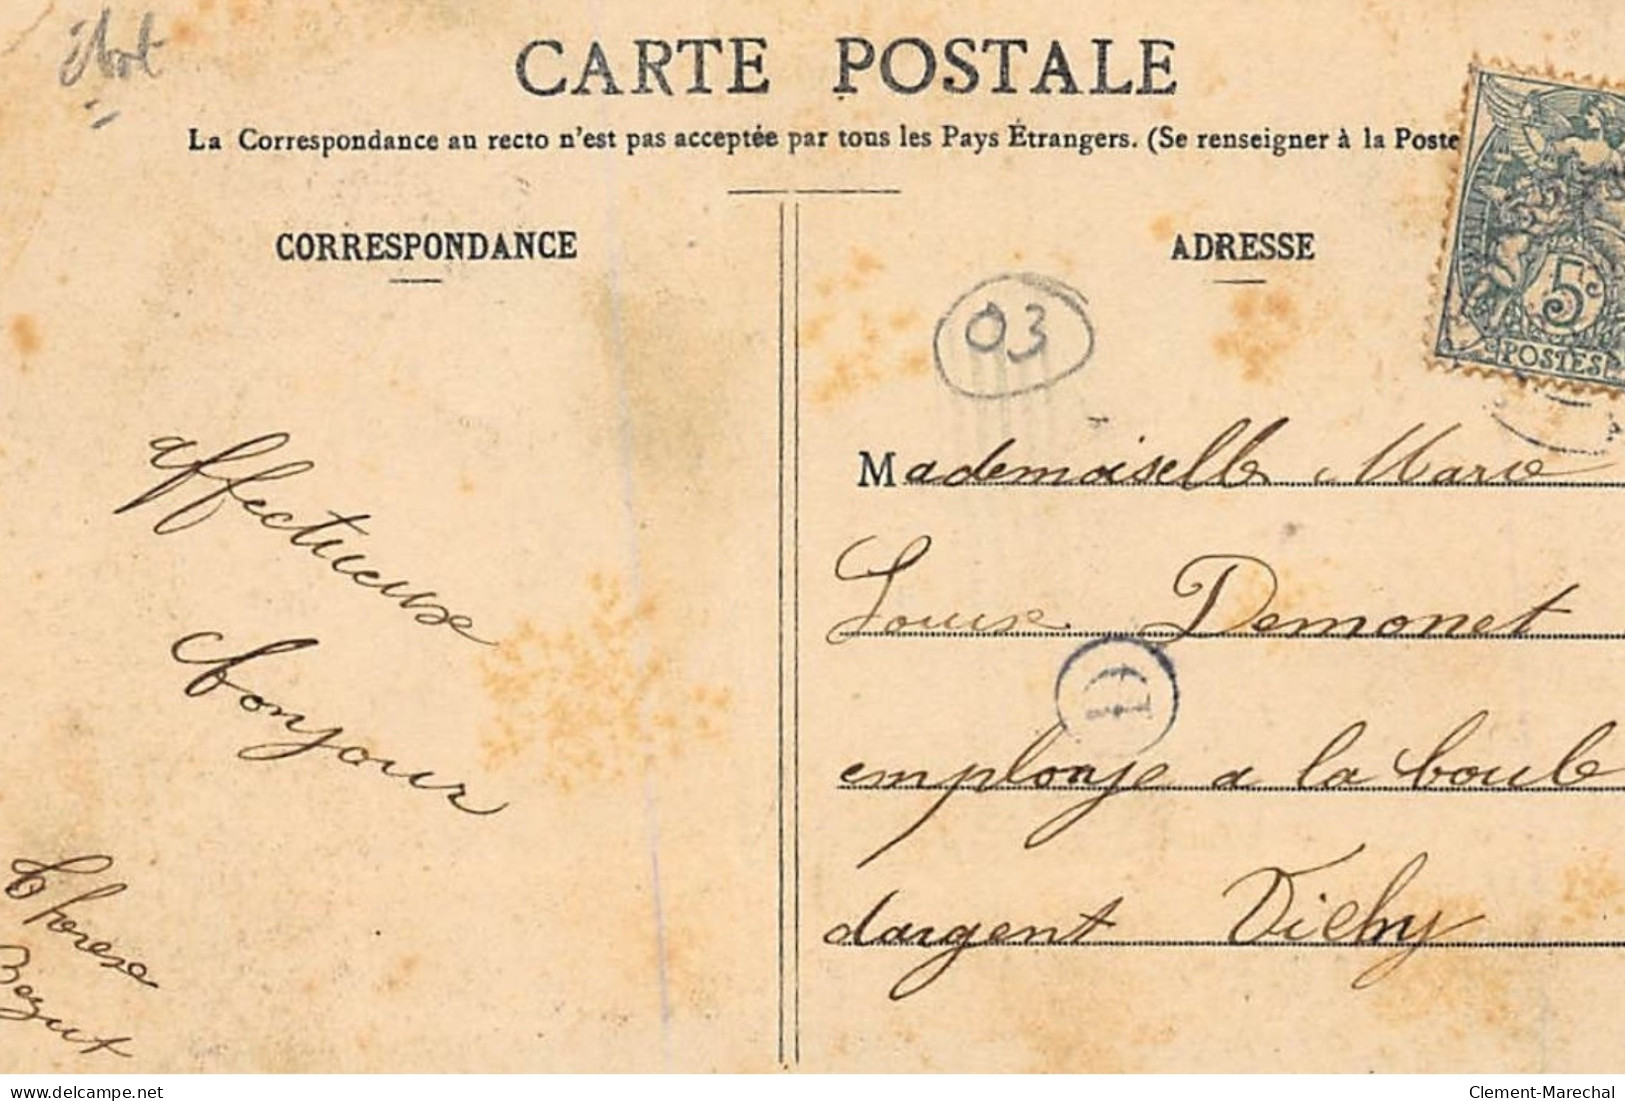 CARTE POSTALE
La Correspondance au recto n'est pas acceptée par tous les Pays Étrangers. (Se renseigner à la Poste
CORRESPONDANCE
affectueuse
bonjour
Therese
Bezut
ADRESSE
03
5c
POSTES
Mademoiselle Marie
Louise Demonet
employe a la boule
dargent Vichy
D
www.delcampe.net
Clement-Marechal